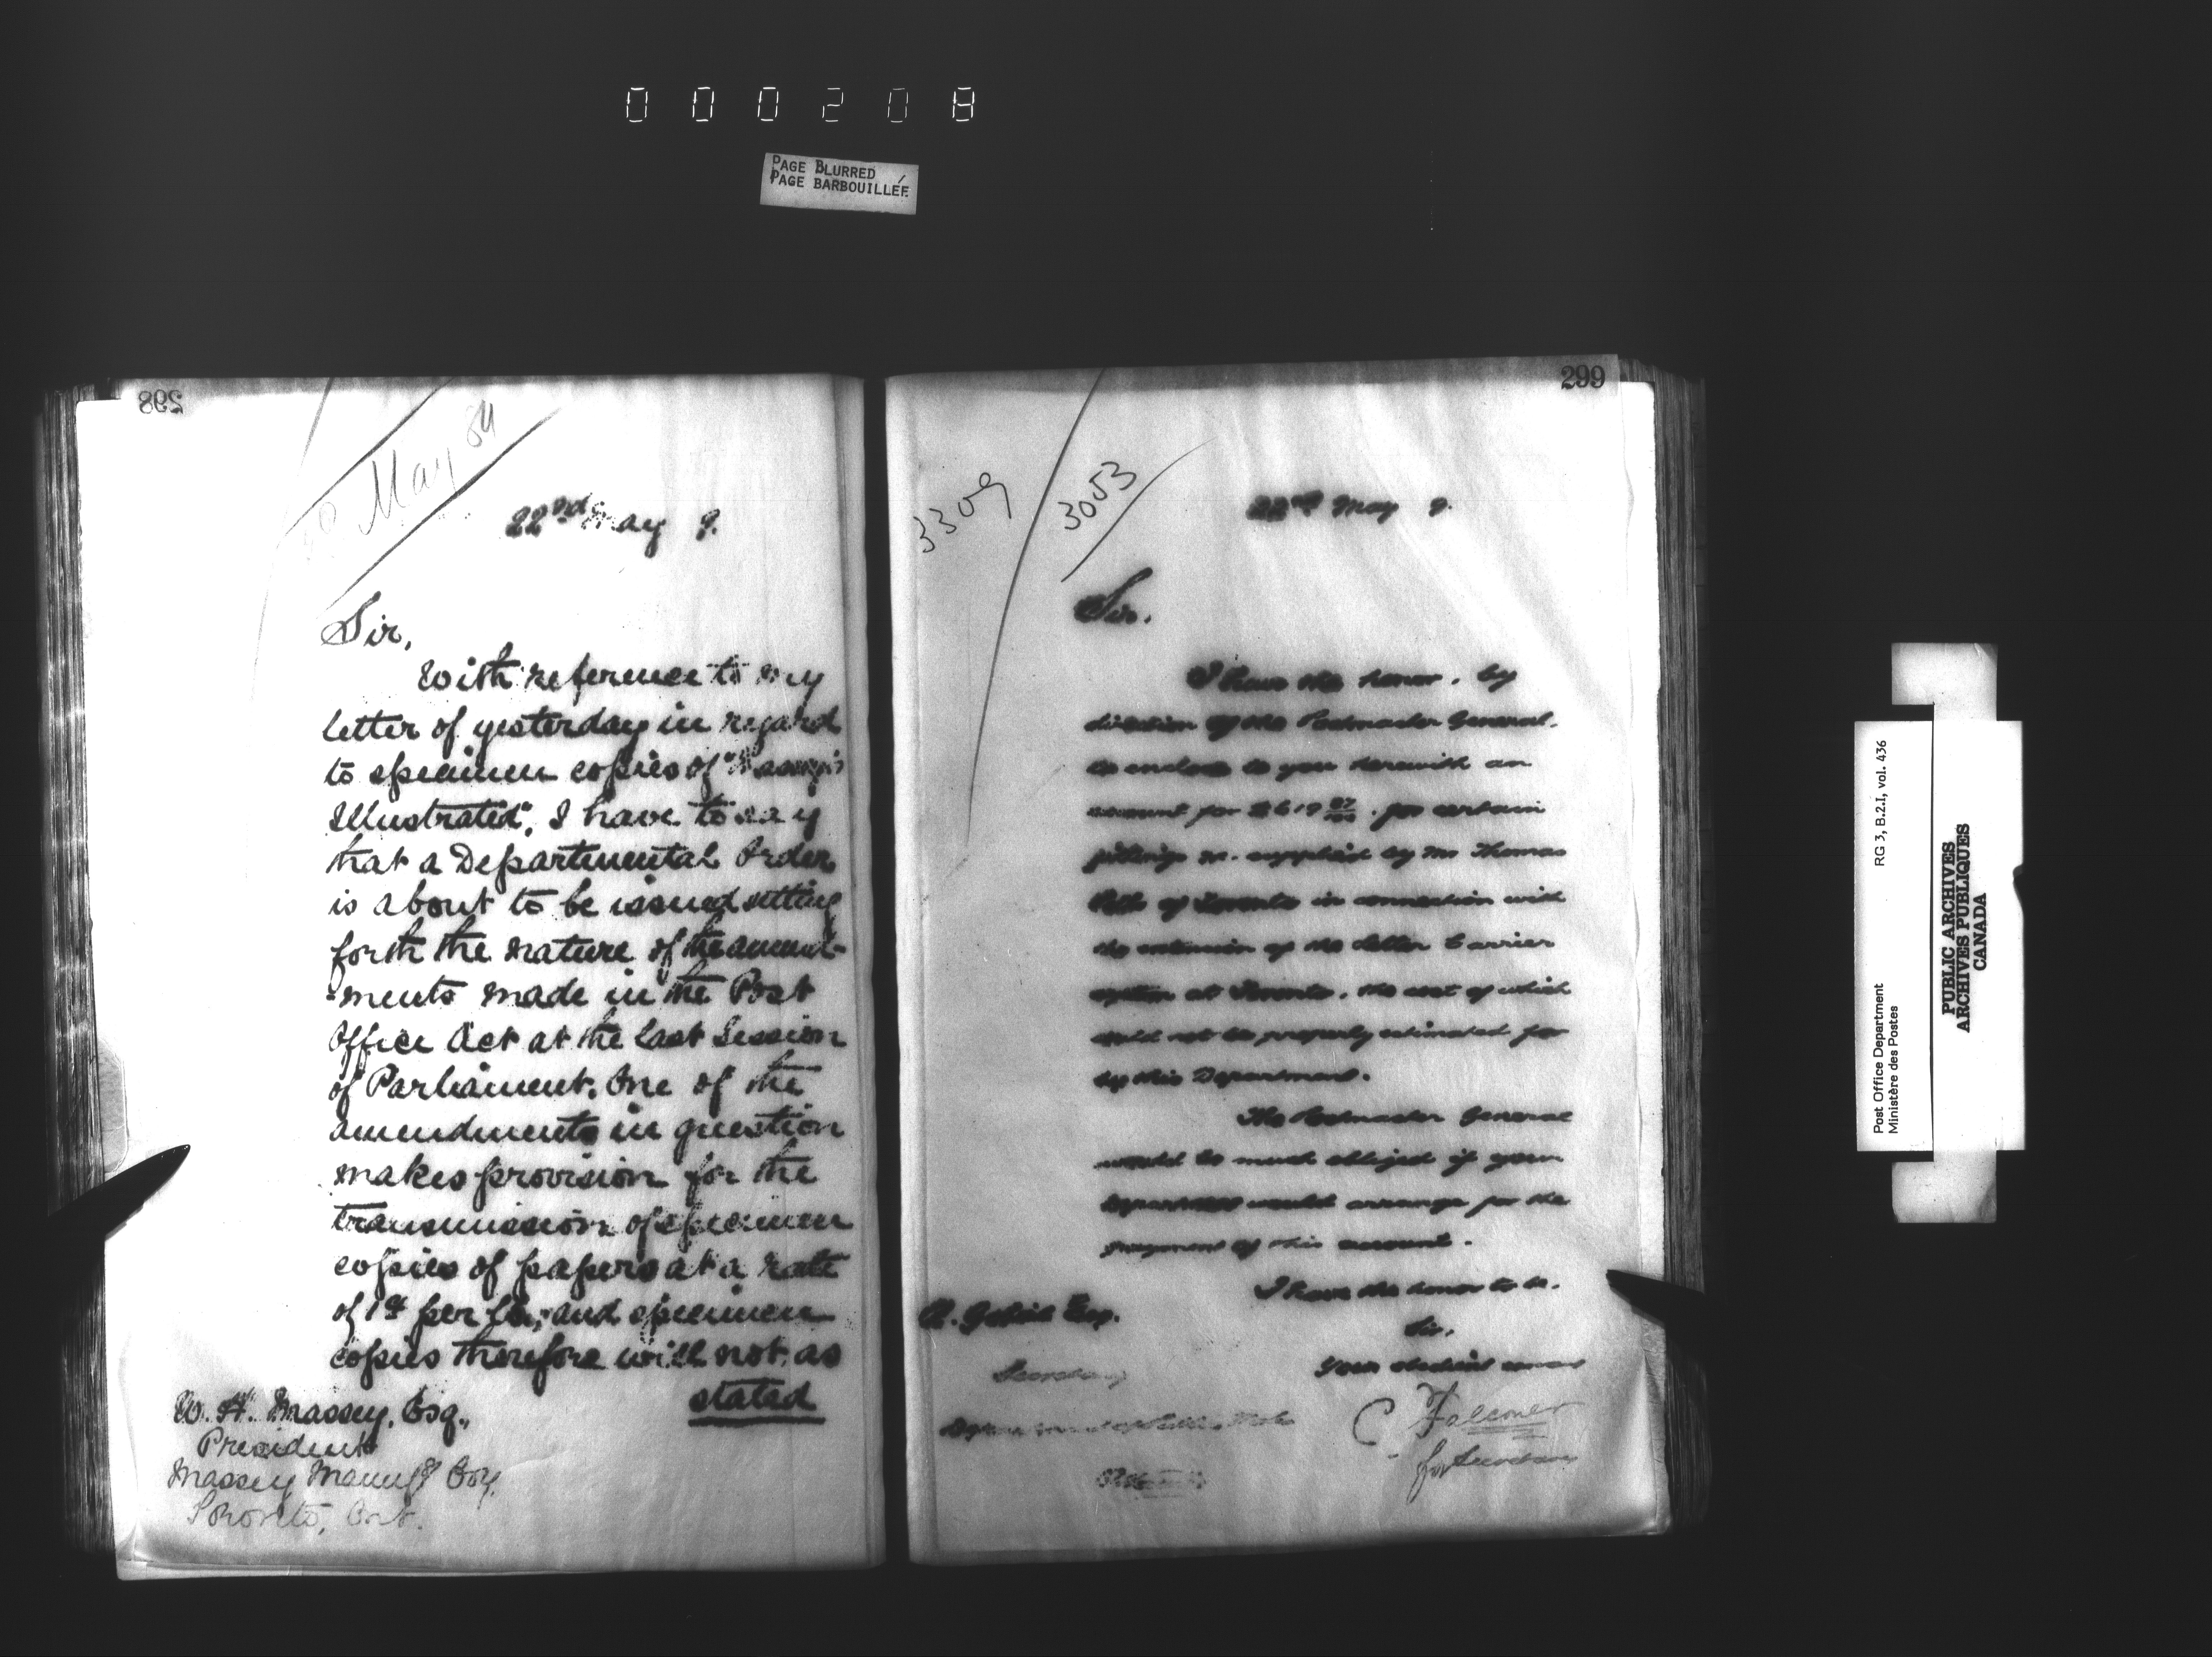 000208
PAGE BLURRED
PAGE BARBOUILLÉE
298
May 89
22nd May 9.
Sir,
With reference to my
letter of yesterday in regard
to specimen copies of "Massey's
Illustrated", I have to say
that a Departmental Order
is about to be issued setting
forth the nature of the amend-
-ments made in the Post
Office Act at the last Session
of Parliament. One of the
amendments in question
makes provision for the
transmission of specimen
copies of papers at a rate
of 1ct per lb, and specimen
copies therefore will not, as
stated
W. H. Massey, Esq.,
President
Massey Manufg Coy.
Toronto, Ont.
299
3309
3053
22nd May 9.
Sir.
I have the honor, by
direction of the Postmaster General,
to enclose to you herewith an
account for for certain
fittings &c. supplied by Mr Thomas
of Toronto in connection with
the extension of the Letter Carrier
system at Toronto, the cost of which
could not be properly estimated for
by this Department.
The Postmaster General
would be much obliged if your
Department would arrange for the
payment of this account.
I have the honor to be.
Sir,
Your obedient servant
A. Gobeil Esq.
Secretary
Department of Public Works
Ottawa
C Falconer
for Secretary
Post Office Department
Ministère des Postes
RG 3, B.2.I, vol. 436
PUBLIC ARCHIVES
ARCHIVES PUBLIQUES
CANADA